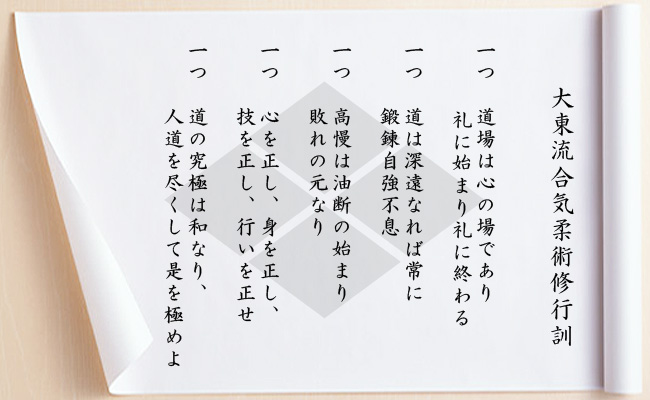 大東流合気柔術修行訓
一つ 道場は心の場であり
礼に始まり礼に終わる
一つ 道は深遠なれば常に
鍛錬自強不息
一つ 高慢は油断の始まり
敗れの元なり
一つ 心を正し、身を正し、
技を正し、行いを正せ
一つ 道の究極は和なり、
人道を尽くして是を極めよ